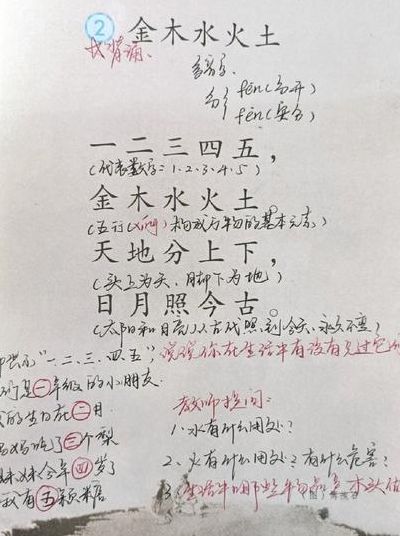 2 金木水火土
我背诵、
多音字、
分 fēn(分开)
fèn(
一二三四五，
(代表数字：1、2、3、4、5)
金木水火土。
(五行(xíng)构成万物的基本元素)
天地分上下，
(头上为天、脚下为地)
日月照今古。
(太阳和月亮从古代照到今天、永久不变)
"一、二、三、四、五"，说说你在生活中有没有见过它们
们是一年级的小朋友
的生日在二月
妈妈吃了三个梨
妹妹今年四岁了
我有五颗糖
教师提问：
1、水有什么用处？
2、火有什么用处？有什么危害？
3、生活中哪些物品是木头